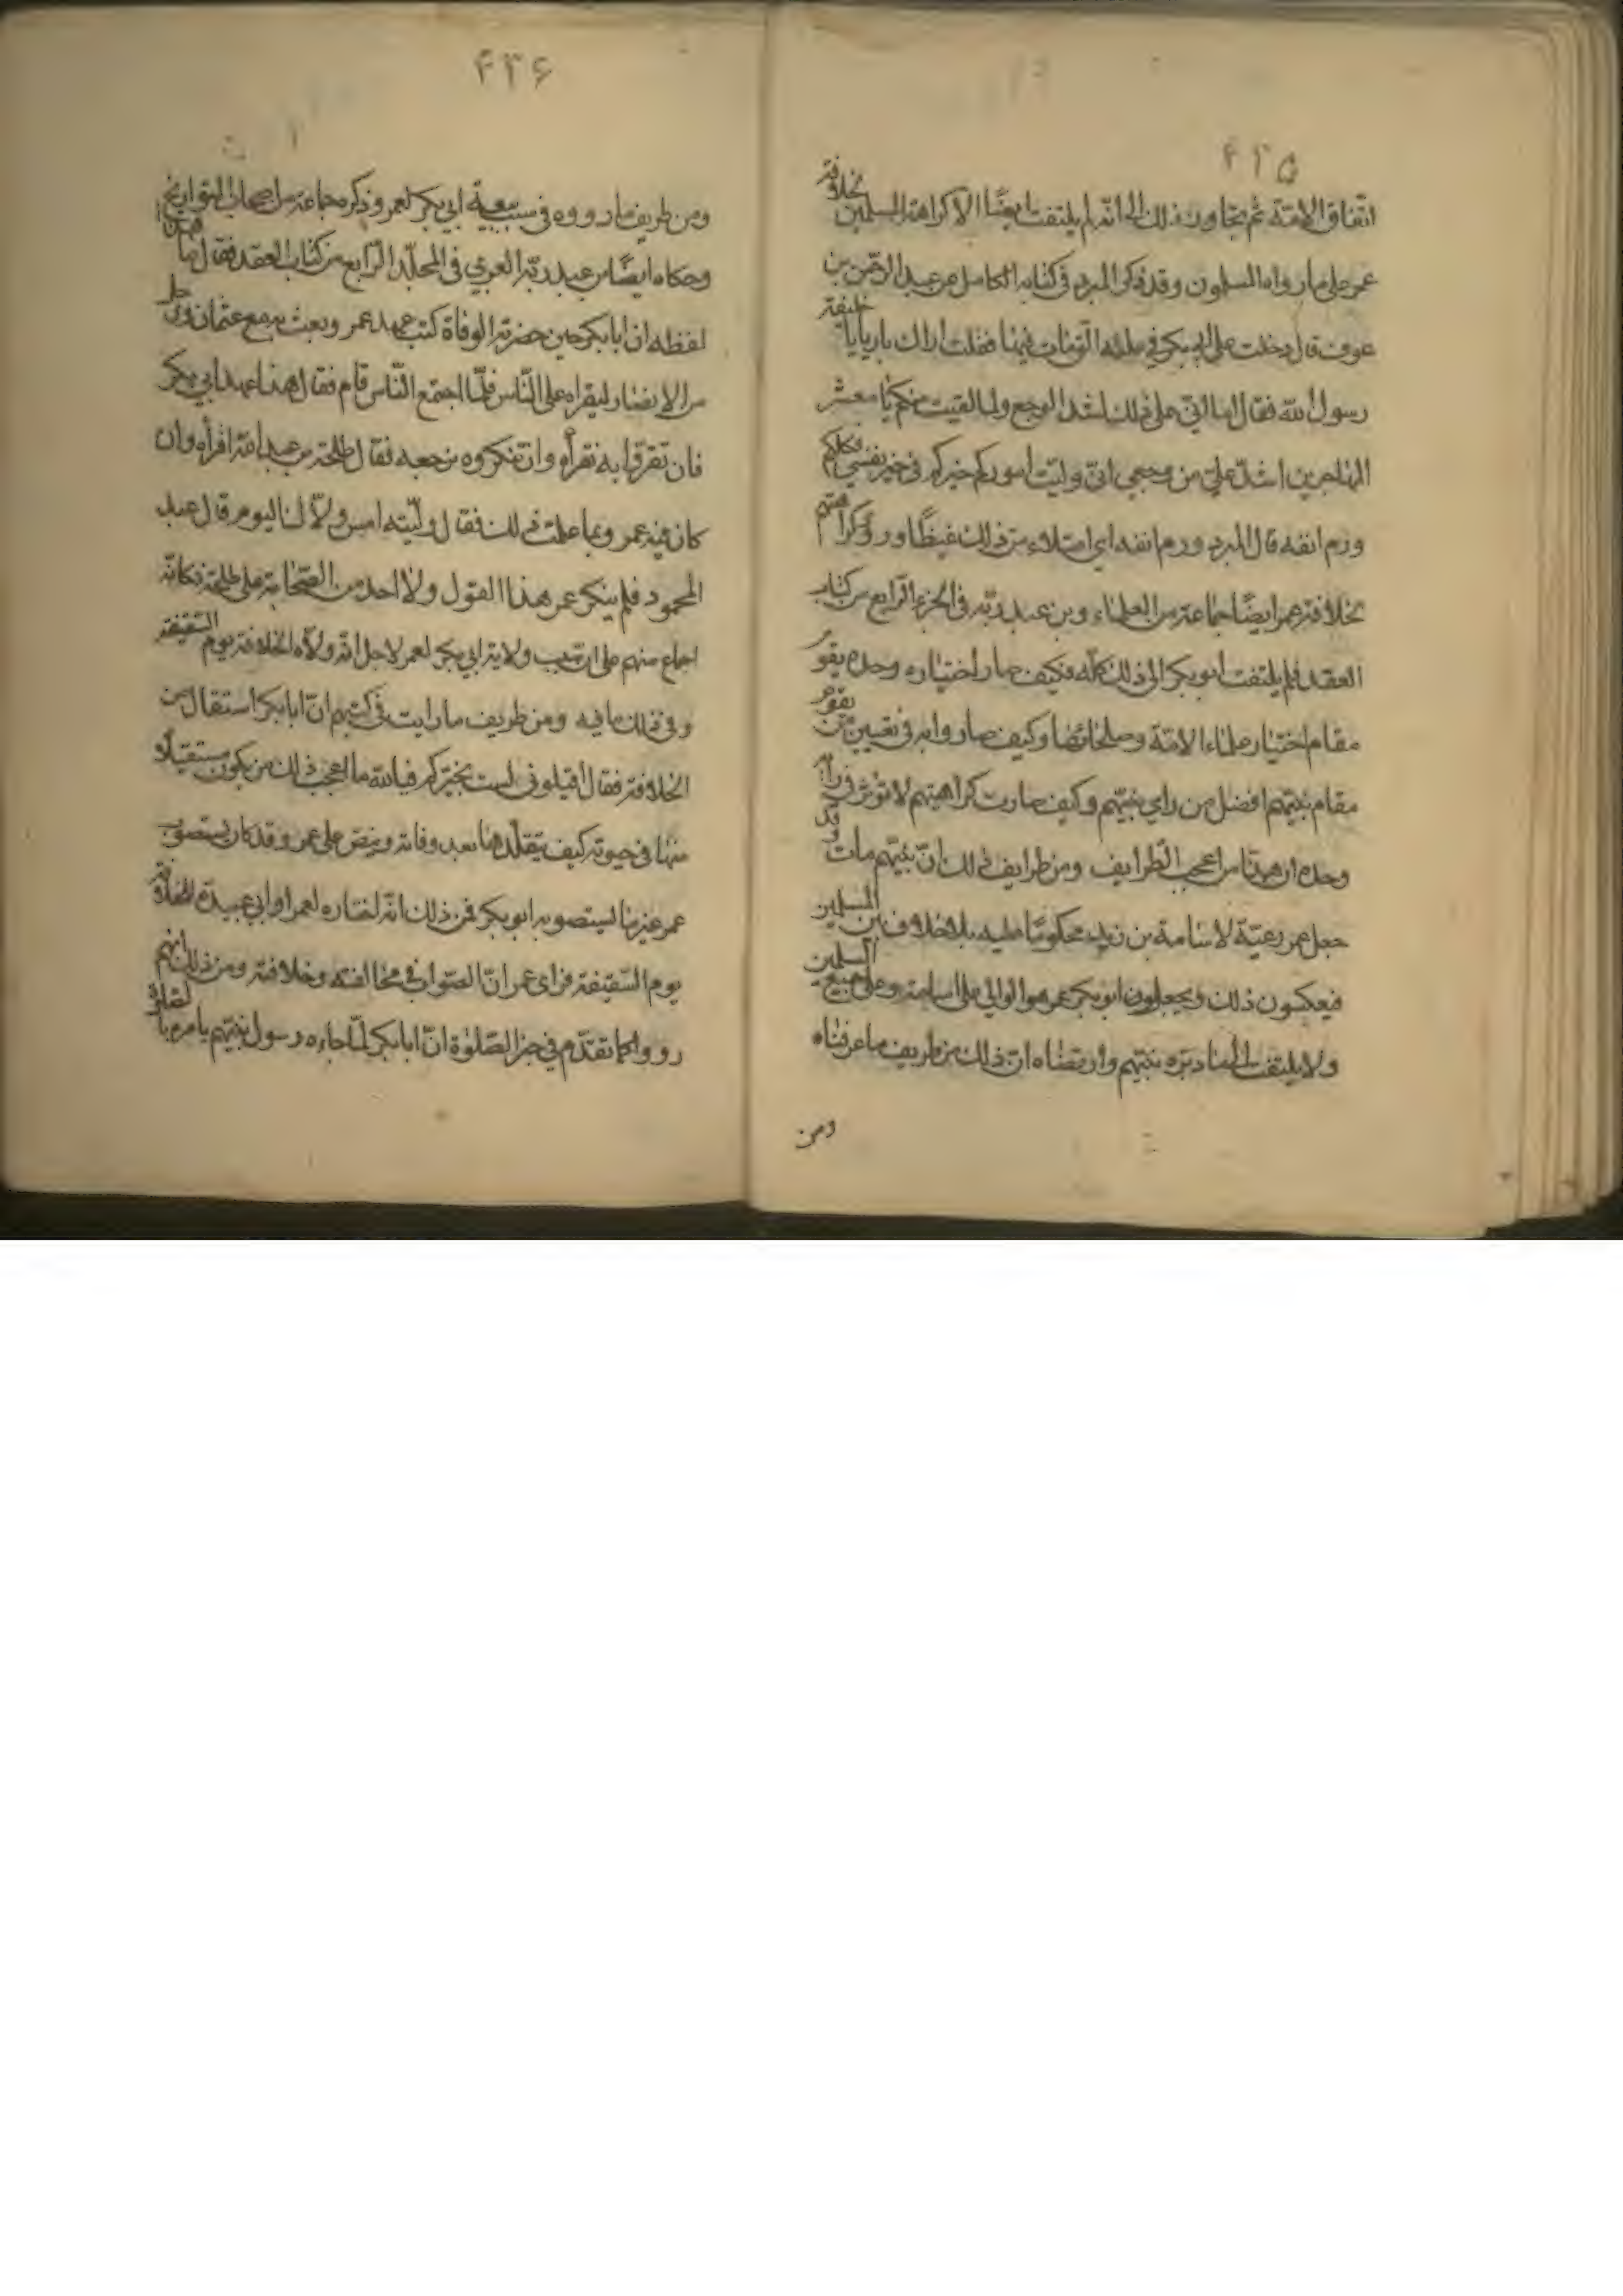 ٤٣٥
اتفاق الامة ثم تجاوز ذلك الى انه لم يلتفت ايضا الا كراهة المسلمين بخلافة
عمر على ما رواه المسلمون وقد ذكر المبرد في كتابه الكامل عن عبد الرحمن بن
عوف قال دخلت على ابي بكر في علته التى مات فيها فقلت اراك بارءا يا خليفة
رسول الله فقال اما انى على ذلك لشديد الوجع ولما لقيت منكم يا معشر
المهاجرين اشد على من وجعى انى وليت اموركم خيركم في نفسي فكلكم
ورم انفه قال المبرد ورم انفه اى امتلاء من ذلك غيظا وذكر كراهتهم
بخلافة عمر ايضا جماعة من العلماء وبن عبد ربه في الجزء الرابع من كتاب
العقد فلم يلتفت ابو بكر الى ذلك كله فكيف صار اختياره وحده يقوم
مقام اختيار علماء الامة وصلحائها وكيف صار وابه في تعيين من يقوم
مقام نبيهم افضل من راى نبيهم وكيف صارت كراهيتهم لا تؤثر في راى
وحده ان هذا من اعجب الطرايف ومن طرايف ذلك ان نبيهم مات وقد
جعل عمر رعية لاسامة بن زيد محكوما عليه بلا خلاف بين المسلمين
فيعكسون ذلك ويجعلون ابو بكر عمر هو الوالى على اسامة وعلى جميع المسلمين
ولا يلتفت الى ما دبره نبيهم وارتضاه ان ذلك من طريف ما عرفناه
ومن
٤٣٦
ومن طريف ما رووه في سبب بيعة ابي بكر لعمر وذكره جماعة من اصحاب التواريخ
وحكاه ايضا بن عبد ربه المغربي في المجلد الرابع من كتاب العقد فقال ما هذا
لفظه ان ابا بكر حين حضرته الوفاة كتب عهد عمر وبعث به مع عثمان ورجل
من الانصار ليقراه على الناس فلما اجتمع الناس قام فقال هذا عهد ابي بكر
فان تقروا به نقرأه وان تنكروه نرجعه فقال طلحة بن عبد الله اقرأه وان
كان فيه عمر وبما علمت ذلك فقال وليته امس وولاك اليوم قال عبد
المحمود فلم ينكر عمر هذا القول ولا احد من الصحابة على طلحة فكانه
اجماع منهم على ان سبب ولاية ابي بكر لعمر لاجل انه ولاه الخلافة يوم السقيفة
وفي ذلك ما فيه ومن طريف ما رايت في كتبهم ان ابا بكر استقال من
الخلافة فقال اقيلوني لست بخيركم فيالله ما اعجب ذلك من يكون مستقيلا
منها في حيوته كيف يتقلدها بعد وفاته وينص على عمر وقد كان يستصوب
عمر غير ما يستصوبه ابو بكر فمن ذلك انه اختاره لعمر او ابي عبيدة للخلافة
يوم السقيفة فراى عمر ان الصواب في مخالفته وخلافته ومن ذلك انهم
رووا كما تقدم في خبر الصلوة ان ابا بكر لما جاءه رسول نبيهم يامره بالصلوة